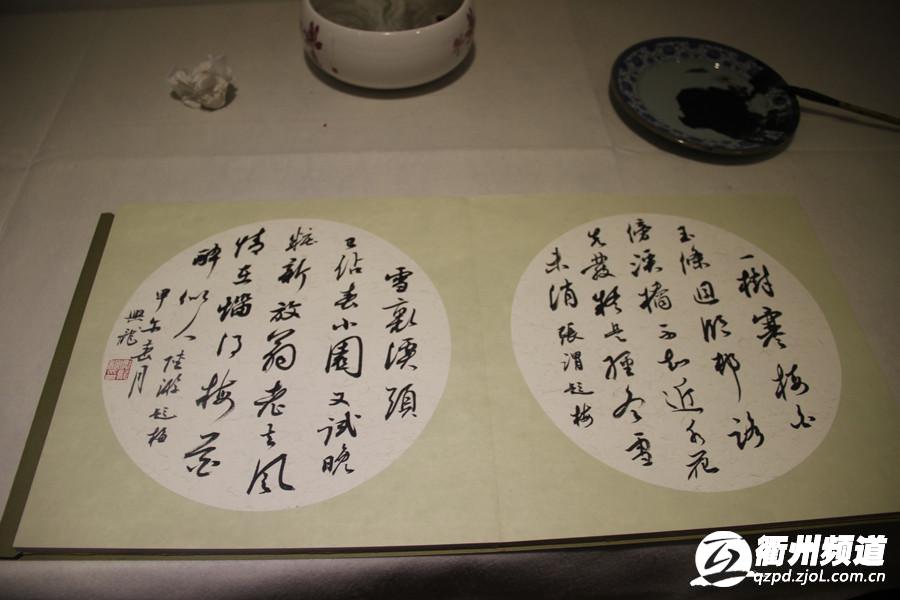 一樹寒梅白
玉條迥臨邨路
傍溪橋不知近水花
先發疑是經冬雪
未消 張渭題梅
雪裏溪頭
已佔春小園又試晚
粧新放翁老去風
情在惱得梅花
醉似人 陸游題梅
甲午春月
興龍
衢州频道
qzpd.zjol.com.cn